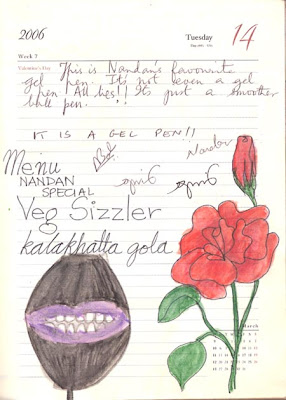 2006
Tuesday
14
Week 7
Valentine's Day
This is Nandan's favourite
gel pen. It's not even a gel
pen! All lies!! It's just a smoother
ball pen.
IT IS A GEL PEN!!
Nandan
Menu
NANDAN
SPECIAL
Veg Sizzler
kalakhatta gola
March